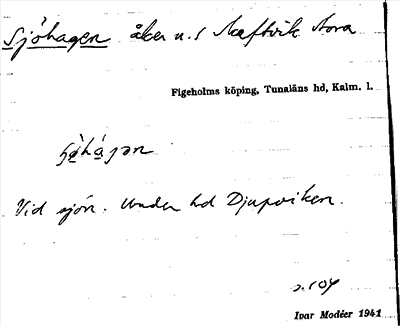 Sjöhagen åker n. s Näftvik Norra
Figeholms köping, Tunaläns hd, Kalm. l.
Vid sjön. Under hd Djupviken.
s. 104
Ivar Modéer 1941